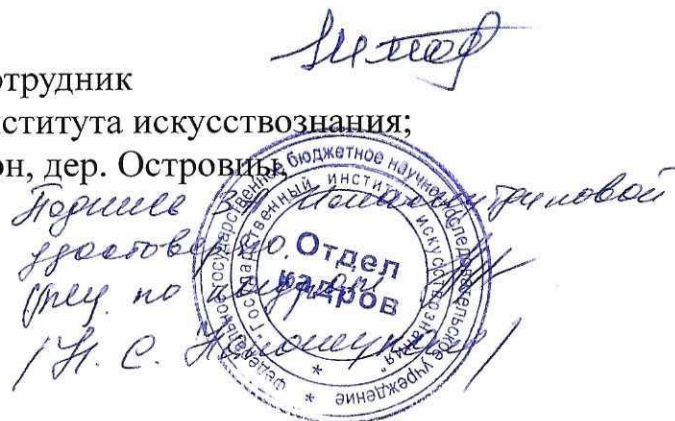 отрудник
нститута искусствознания;
он, дер. Островцы,
Подпись
удостоверяю.
спец. по кадрам
Федеральное государственное бюджетное научно-исследовательское учреждение
"Государственный институт искусствознания"
Отдел
кадров